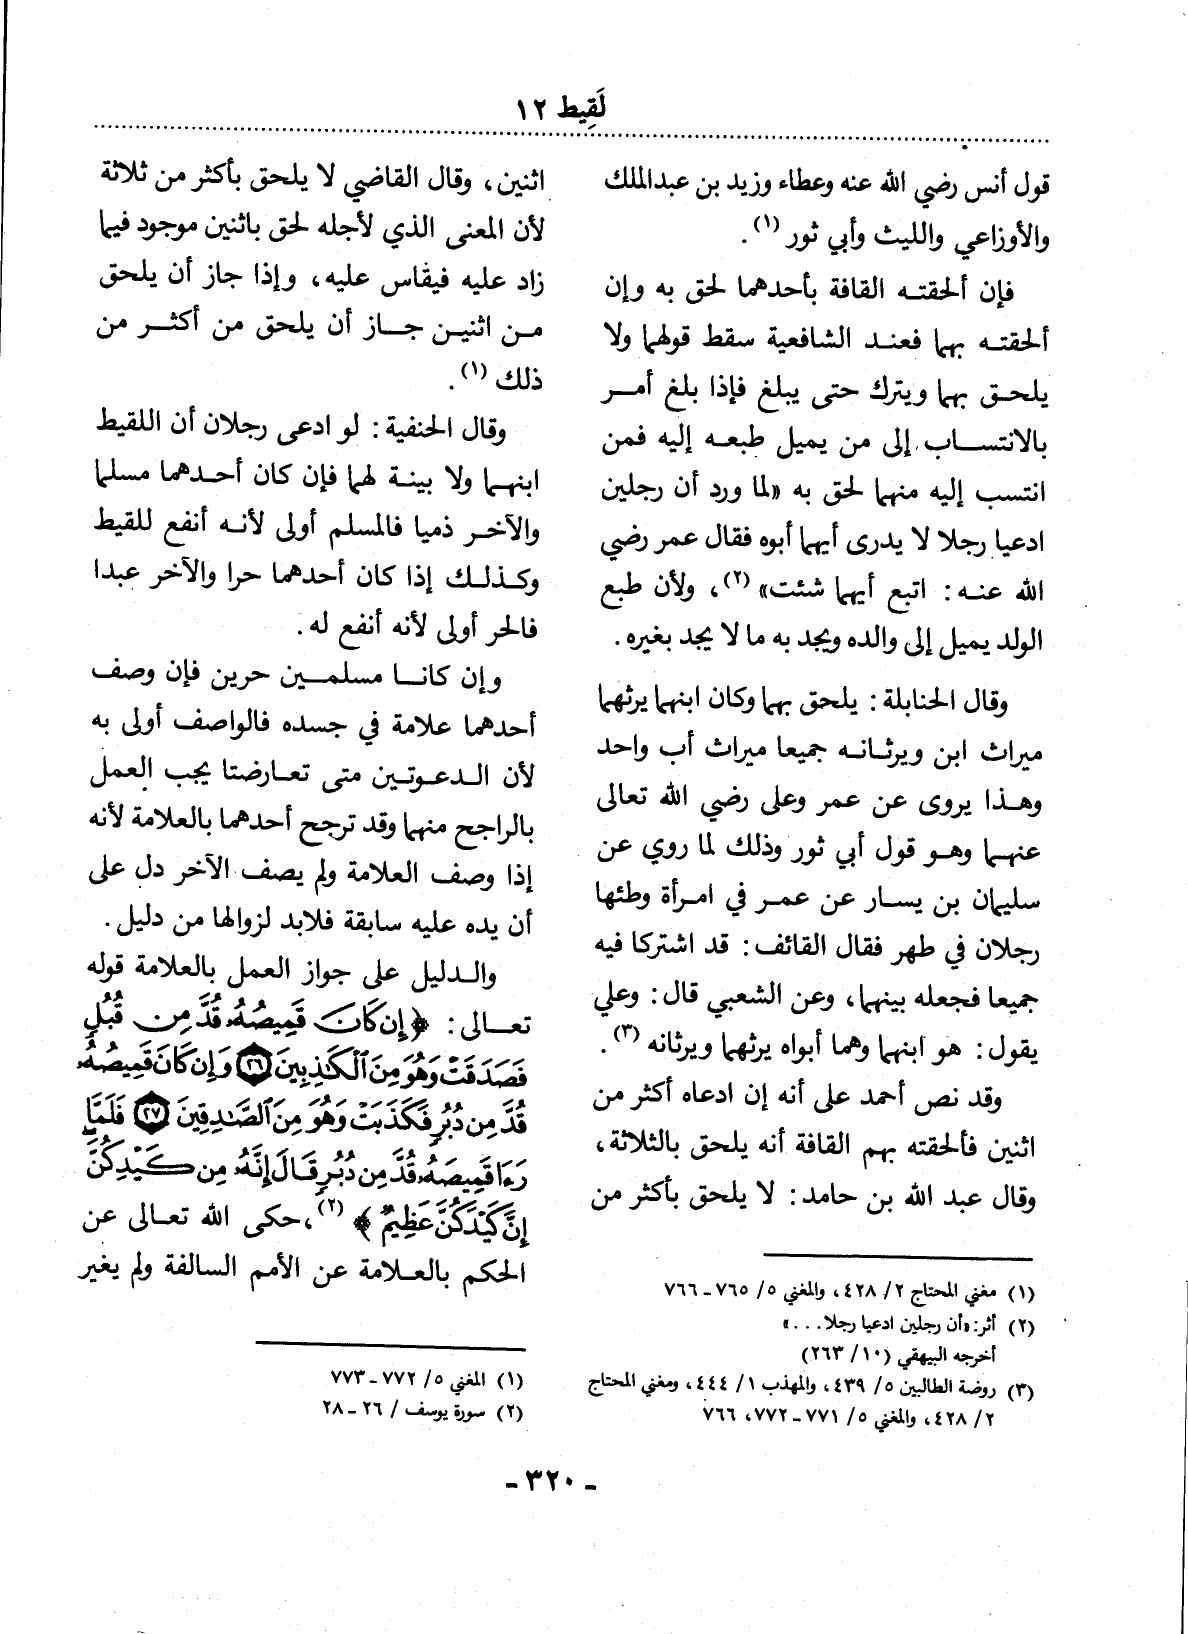 لَقِيط ١٢
قول أنس رضي الله عنه وعطاء وزيد بن عبدالملك
والأوزاعي والليث وأبي ثور (١) .
فإن ألحقتـه القافة بأحدهما لحق به وإن
ألحقتـه بهما فعنـد الشافعية سقط قولهما ولا
يلحـق بهما ويترك حتى يبلغ فإذا بلغ أمـر
بالانتسـاب إلى من يميل طبعـه إليه فمن
انتسب إليه منهما لحق به «لما ورد أن رجلين
ادعيا رجلا لا يدرى أيهما أبوه فقال عمر رضي
الله عنـه : اتبع أيهما شئت» (٢) ، ولأن طبع
الولد يميل إلى والده ويجد به ما لا يجد بغيره .
وقال الحنابلة : يلحق بهما وكان ابنهما يرثهما
ميراث ابن ويرثـانـه جميعا ميراث أب واحد
وهـذا يروى عن عمر وعلى رضي الله تعالى
عنهـما وهـو قول أبي ثور وذلك لما روي عن
سليمان بن يسـار عن عمـر في امـرأة وطئها
رجلان في طهر فقال القائف : قد اشتركا فيه
جميعا فجعله بينهما ، وعن الشعبي قال : وعلي
يقول : هو ابنهما وهما أبواه يرثهما ويرثانه (٣) .
وقد نص أحمد على أنه إن ادعاه أكثر من
اثنين فألحقته بهم القافة أنه يلحق بالثلاثة ،
وقال عبد الله بن حامد : لا يلحق بأكثر من
(١) مغني المحتاج ٢/ ٤٢٨ ، والمغني ٥/ ٧٦٥ ـ ٧٦٦
(٢) أثر : «أن رجلين ادعيا رجلا . . . »
أخرجه البيهقي (١٠/ ٢٦٣)
(٣) روضة الطالبين ٥/ ٤٣٩ ، والمهذب ١/ ٤٤٤ ، ومغني المحتاج
٢/ ٤٢٨ ، والمغني ٥/ ٧٧١ ـ ٧٧٢ ، ٧٦٦
اثنين ، وقال القاضي لا يلحق بأكثر من ثلاثة
لأن المعنى الذي لأجله لحق باثنين موجود فيما
زاد عليه فيقاس عليه ، وإذا جاز أن يلحق
مـن اثنيـن جـاز أن يلحق من أكثـر من
ذلك (١) .
وقال الحنفية : لو ادعى رجلان أن اللقيط
ابنهـما ولا بينـة لهما فإن كان أحـدهما مسلما
والآخـر ذميا فالمسلم أولى لأنـه أنفع للقيط
وكـذلـك إذا كان أحدهما حرا والآخر عبدا
فالحر أولى لأنه أنفع له .
وإن كانـا مسلمـين حرين فإن وصف
أحدهما علامة في جسده فالواصف أولى به
لأن الـدعـوتـين متى تعـارضتا يجب العمل
بالراجح منهما وقد ترجح أحدهما بالعلامة لأنه
إذا وصف العلامة ولم يصف الآخر دل على
أن يده عليه سابقة فلابد لزوالها من دليل .
والـدليل على جواز العمل بالعلامة قوله
تعـالى : ﴿ إِن كَانَ قَمِيصُهُۥ قُدَّ مِن قُبُلٍ
فَصَدَقَتْ وَهُوَ مِنَ ٱلْكَٰذِبِينَ ٢٦ وَإِن كَانَ قَمِيصُهُۥ
قُدَّ مِن دُبُرٍ فَكَذَبَتْ وَهُوَ مِنَ ٱلصَّٰدِقِينَ ٢٧ فَلَمَّا
رَءَا قَمِيصَهُۥ قُدَّ مِن دُبُرٍ قَالَ إِنَّهُۥ مِن كَيْدِكُنَّ
إِنَّ كَيْدَكُنَّ عَظِيمٌ ﴾ (٢) ، حكى الله تعـالى عن
الحكم بالعـلامة عن الأمم السالفة ولم يغير
(١) المغني ٥/ ٧٧٢ ـ ٧٧٣
(٢) سورة يوسف / ٢٦ ـ ٢٨
ـ ٣٢٠ ـ